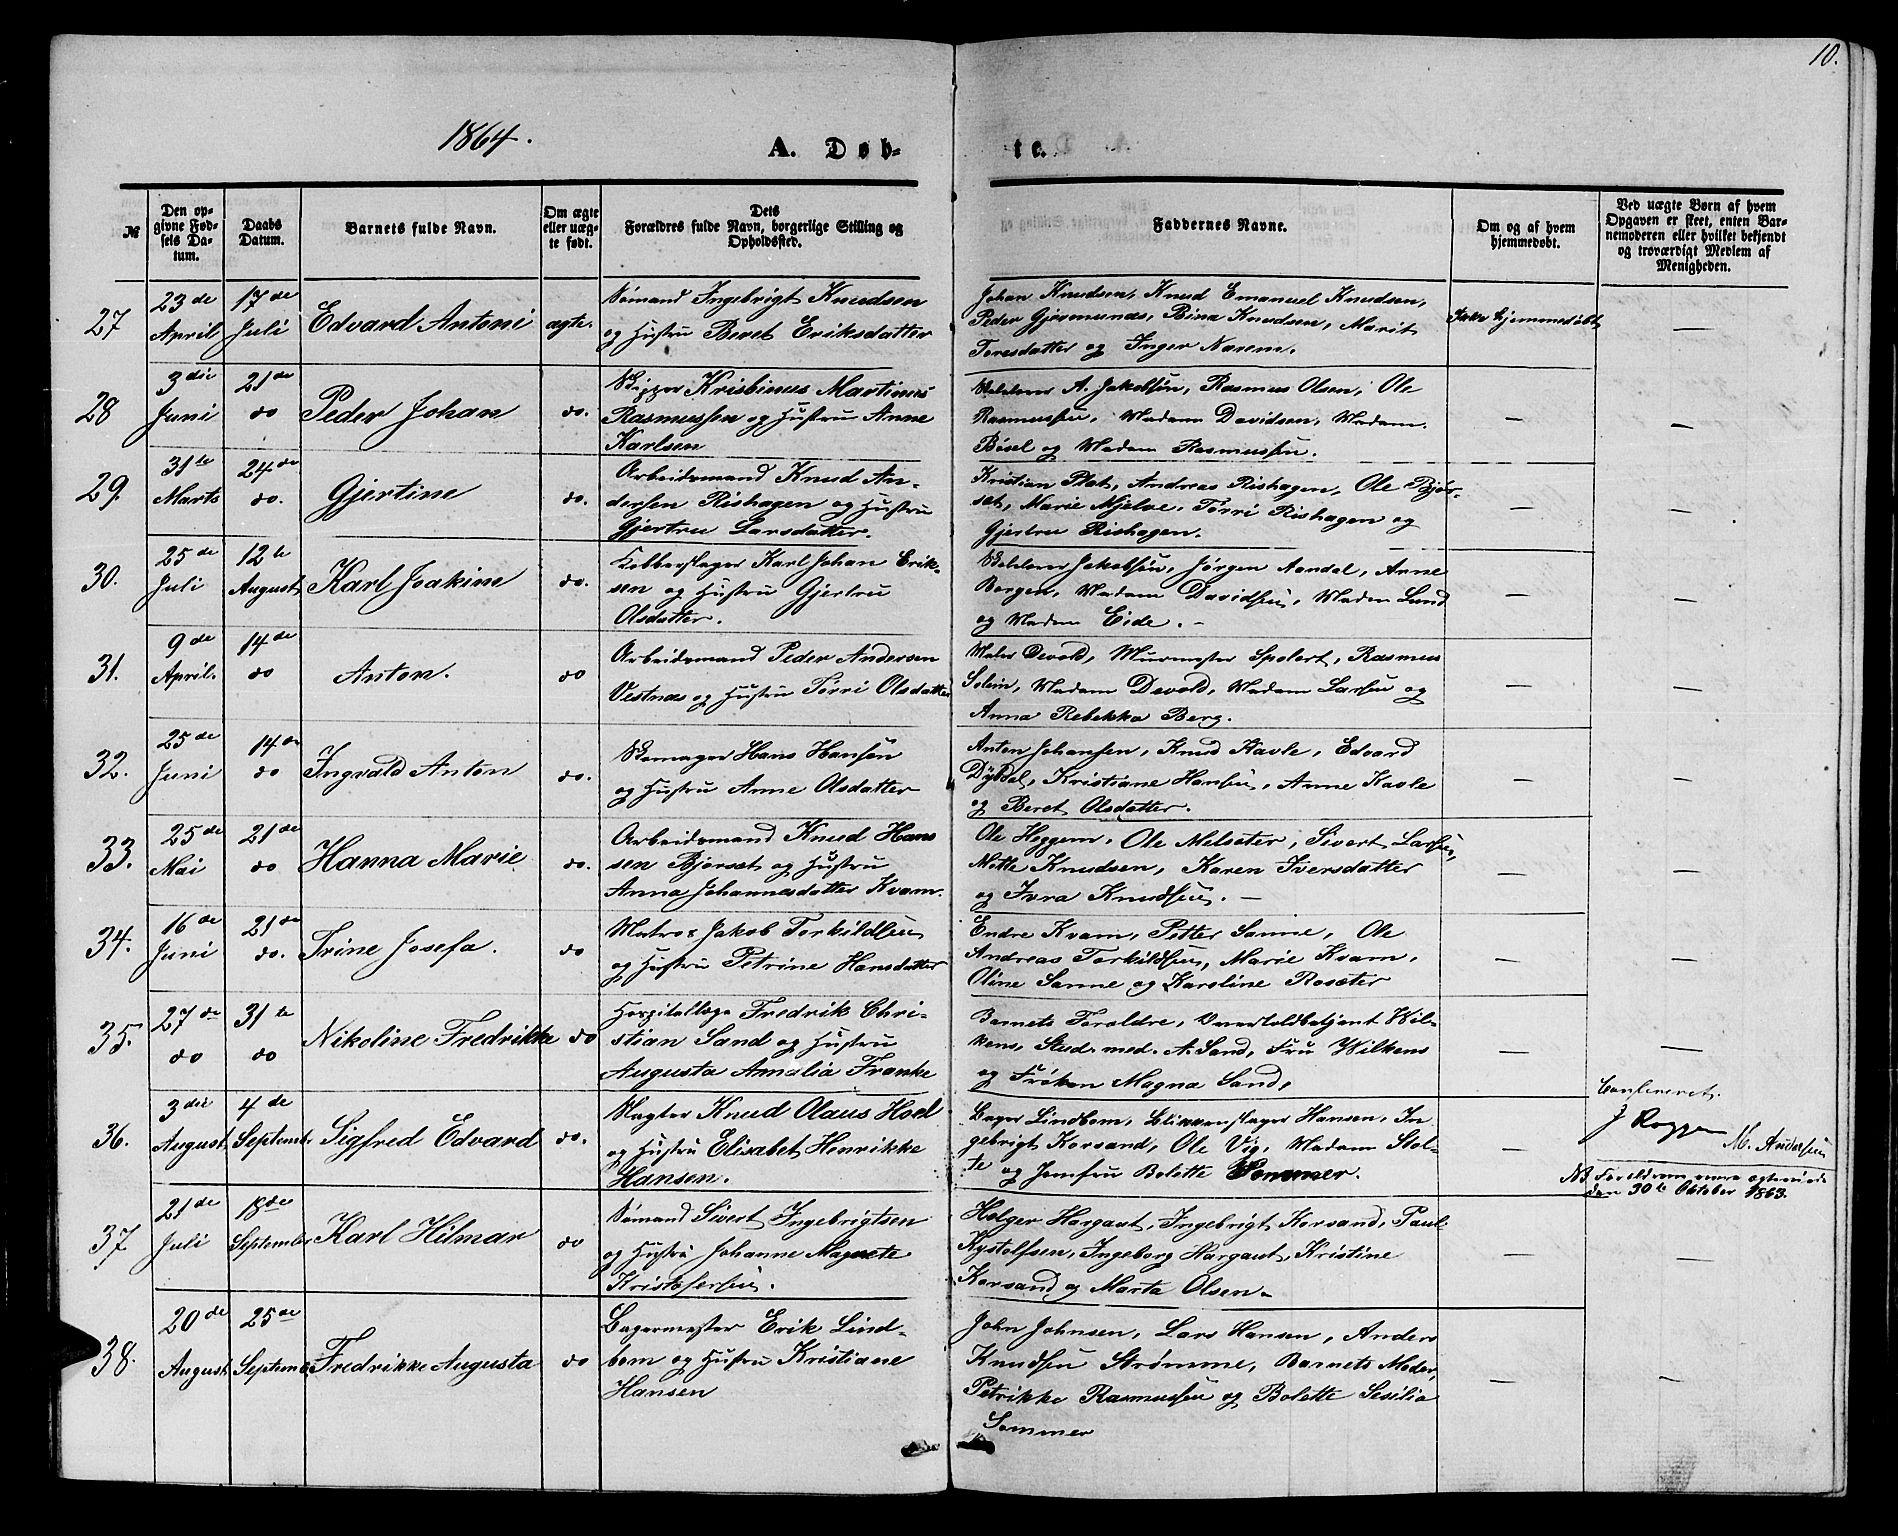 10.
1864.
A. Døb-
te.
№
Den op-
givne Fød-
sels Da-
tum.
Daabs
Datum.
Barnets fulde Navn.
Om ægte
eller uæg-
te født.
Dets
Forældres fulde Navn, borgerlige Stilling og
Opholdssted.
Faddernes Navne.
Om og af hvem
hjemmedøbt.
Ved uægte Børn af hvem
Opgaven er skeet, enten Bar-
nemoderen eller hvilket bekjendt
og troværdigt Medlem af
Menigheden.
27
23de
April
17de
Juli
Edvard Antoni
ægte.
Sømand Ingebrigt Knudsen
og Hustru Beret Eriksdatter
Johan Knudsen, Knud Emanuel Knudsen,
Peder Gjørmundnæs, Bina Knudsen, Marit
Toresdatter og Inger Narem.
Ikke hjemmedøbt
—
28
3die
Juni
21de
do
Peder Johan
do.
Skipper Kristinus Martinus
Rasmussen og Hustru Anne
Karlsen
A. Jakobsen, Rasmus Olsen, Ole
Rasmussen, Madam Davidsen, Madam
Bösel og Madam Rasmussen.
—
—
29.
31te
Marts
24de
do.
Gjertine
do.
Arbeidsmand Knud An-
dersen Rishagen og Hustru
Gjertru Larsdatter.
Kristian Plat, Andreas Rishagen, Ole Bjør-
set, Marie Mjelve, Törri Rishagen og
Gjertru Rishagen.
—
—
30.
25de
Juli
12te
August
Karl Joakim
do.
Kobberslager Karl Johan Erik-
sen og Hustru Gjertru
Olsdatter.
Jakobsen, Jørgen Aandal, Arne
Bergen, Madam Davidsen, Madam Lund
og Madam Eide. —
—
—
31.
9de
April.
14de
do
Anton.
do
Arbeidsmand Peder Andersen
Vestnæs og Hustru Törri Olsdatter
Maler Devold, Muurmester Spolert, Rasmus
Solem, Madam Devold, Madam Larsen og
Anna Rebekka Berg.
—
—
32.
25de
Juni
14de
do
Ingvald Anton
do.
Skomager Hans Hansen
og Hustru Anne Olsdatter
Anton Johansen, Knud Kavle, Edvard
Dybdal, Kristiane Hansen, Anne Kavle
og Beret Olsdatter.
—
—
33.
25de
Mai
21de
do
Hanna Marie
do.
Arbeidsmand Knud Han
sen Bjørset og Hustru
Anna Johannesdatter Kvam.
Ole Heggem, Ole Melseter, Sivert Larsen,
Mette Knudsen, Karen Iversdatter
og Ivra Knudsen. —
—
—
34.
16de
Juni
21de
do.
Trine Josefa.
do
Matros Jakob Torkildsen
og Hustru Petrine Hansdatter
Endre Kvam, Petter Sanne, Ole
Andreas Torkildsen, Marie Kvam,
Oline Sanne og Karoline Roseter
—
—
35.
27de
do
31te
do
Nikoline Fredrikke
do
Hospitallæge Fredrik Chri-
stian Sand og Hustru
Augusta Amalia Franke
Barnets Forældre, Overtoldbetjent Wil-
kens, Stud. med. A. Sand, Fru Wilkens
og Frøken Magna Sand,
—
—
Confereret.
J Rogge
M. Andersen
36.
3die
August
4de
Septembr
Sigfred Edvard
do.
Slagter Knud Olaus Hoel
og Hustru Elisabet Henrikke
Hansen.
Bager Lindbom, Blikkenslager Hansen, In
gebrigt Korsand, Ole Vig, Madam Stol-
te og Jomfru Bolette Sommer.
—
NB Forældrene ere ægteviede
den 30te Oktober 1863.
37
21de
Juli
18de
September
Karl Hilmar
do
Sømand Sivert Ingebrigtsen
og Hustru Johanne Magrete
Kristofersen.
Holger Hargaut, Ingebrigt Korsand, Paul
Kystolfsen, Ingeborg Hargaut, Kristine
Korsand og Marta Olsen.
—
—
38.
20de
August
25de
Septemb.
Fredrikke Augusta
do
Bagermester Erik Lind-
bom og Hustru Kristiane
Hansen
John Johnsen, Lars Hansen, Anders
Knudsen Strømme, Barnets Moder,
Petrikke Rasmussen og Bolette Sesilia
Sommer
—
—